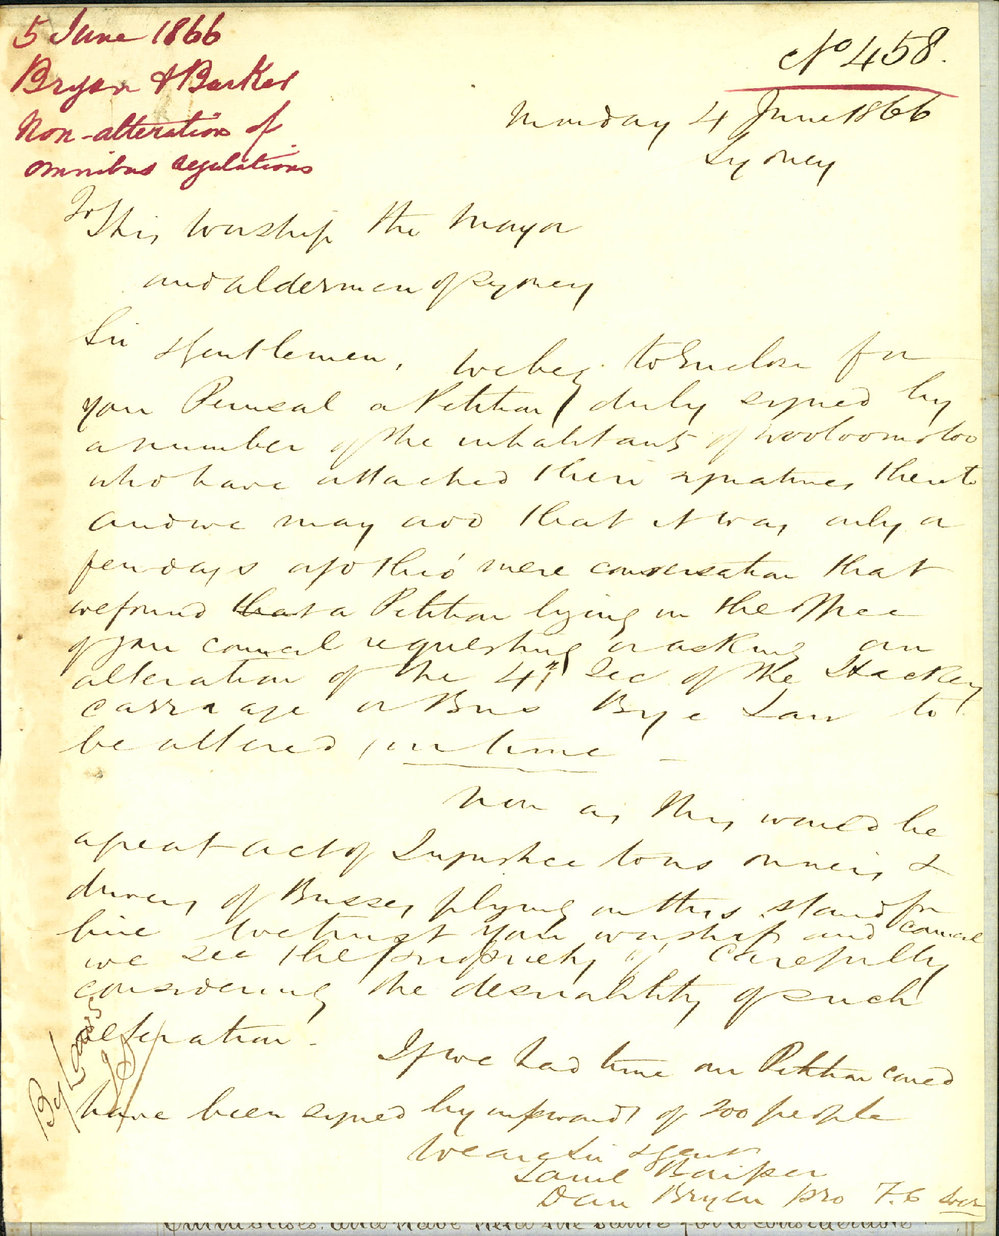 5 June 1866
Bryen & Barker
Non-alteration of
omnibus regulations
No 458.
Monday 4 June 1866
Sydney
To His Worship the Mayor
and aldermen of Sydney
Sir & gentlemen, we beg to Enclose for
your Perusal a Petition duly signed by
a number of the inhabitants of Wooloomoloo
who have attached their signatures thereto
and we may add that it was only a
few days ago thro' mere conversation that
we found that a Petition lying in the office
of your council requesting or asking an
alteration of the 4th Sec of the Hackney
carriage or Bus Bye Law to
be altered, in time
Now as this would be
a great act of Injustice to us owners &
drivers of Busses plying on this stand for
hire we trust your worship and council
we see the propriety of carefully
considering the desirability of such
alteration.
If we had time our Petition could
have been signed by upwards of 200 people
We are Sir & gent
Daniel Bryen pro
By Laws
omnibuses. and have held the same for a considerable